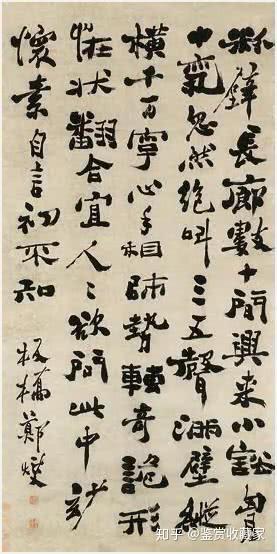 粉壁長廊數十間興來小豁胸
中氣忽然絶叫三五聲滿壁縱
橫千百字心手相師勢轉奇詭形
怪狀翻合宜人〻欲問此中妙
懷素自言初不知
板橋鄭燮
知乎 @鉴赏收藏家